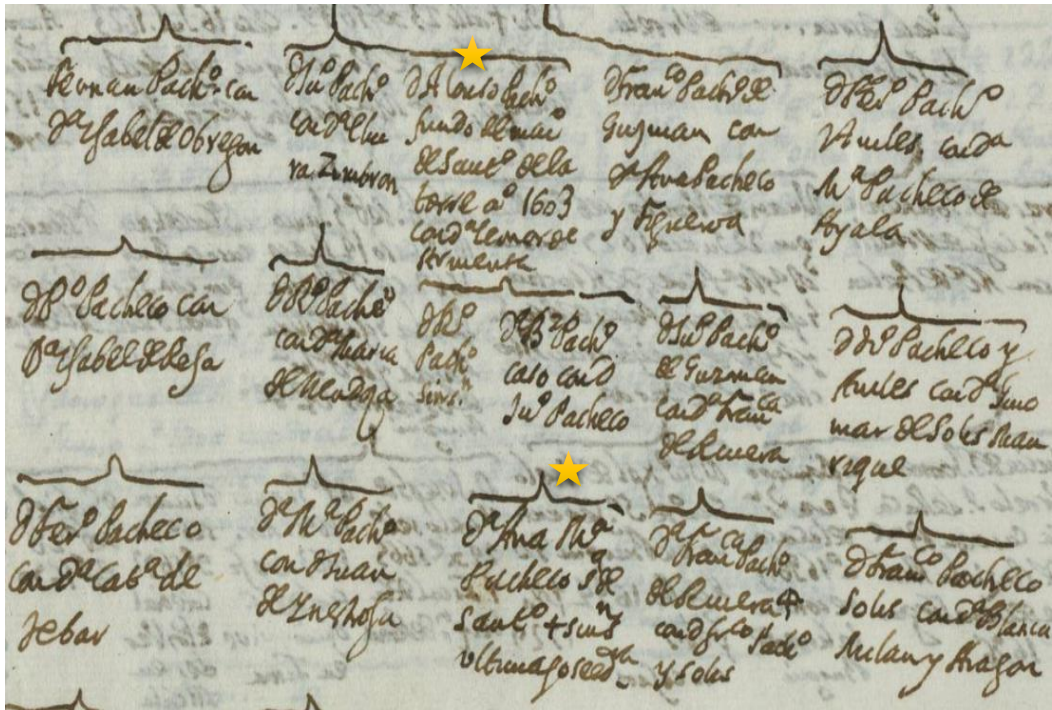 fernan Pach.º con
d.ª ysabel de Obregon
d Ju.º Pach.º
con d.ª
ra Zambron
d Alonso Pach.º
fundo el mai.º
de Sant.º de la
torre a.º 1603
con d.ª leonor de
Armenta
d fran.co Pach.º de
Guzman con
d.ª Ana Pacheco
y figueroa
d fer.º Pach.º
Aviles con d.ª
M.ª Pacheco de
Ayala
d P.º Pacheco con
D.ª ysabel de
d R.º Pach.º
con d.ª Maria
de Mendoça
Pach.º
sin s.n
Pach.º
caso con d
Ju.º Pacheco
d Ju.º Pach.º
de Guzman
con d.ª fran.ca
de Rivera
Pacheco y
Aviles con d.ª Gino
mar de Solis Man
rique
d fer.º Pacheco
con d.ª Cat.ª de
Tebar
d.ª M.ª Pach.º
con d Juan
de Ynestrosa
d.ª Ana M.ª
Pacheco s.ª de
Sant.º + sin s.n
ultima poseed.ra
d.ª fran.ca Pach.º
de Rivera +
con d fr.co Pach.º
y Solis
d fran.co Pacheco
Solis con d.ª Blanca
Milan y Aragon